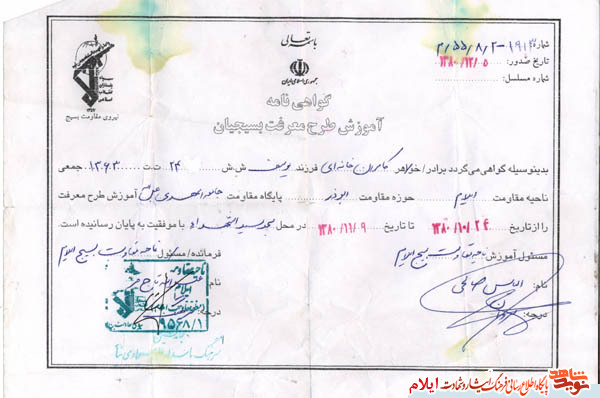 باسمه تعالی
شماره: ۱۹۱۳-۵۵/۸/۲/م
تاریخ صدور: ۱۳۸۰/۱۲/۰۵
شماره مسلسل:
سپاه پاسداران انقلاب اسلامی
نیروی مقاومت بسیج
جمهوری اسلامی ایران
گواهی نامه
آموزش طرح معرفت بسیجیان
بدینوسیله گواهی می گردد برادر/خواهر کامران خانه‌ای فرزند یوسف ش.ش ۲۴ ت.ت ۱۳۶۳ جمعی
ناحیه مقاومت ایلام حوزه مقاومت ابوذر پایگاه مقاومت جامعه المهدی آموزش طرح معرفت
را از تاریخ ۱۳۸۰/۱۰/۲۴ تا تاریخ ۱۳۸۰/۱۱/۰۹ در محل مسجد سیدالشهداء با موفقیت به پایان رسانیده است.
مسئول آموزش ناحیه مقاومت بسیج ایلام
فرمانده/مسئول ناحیه مقاومت بسیج ایلام
نام: الیاس صالحی
نام
درجه:
درجه:
ناحیه مقاومت
ایلام
۹۵۶۸/۱
نوید شاهد
پایگاه اطلاع رسانی فرهنگ ایثار و شهادت ایلام